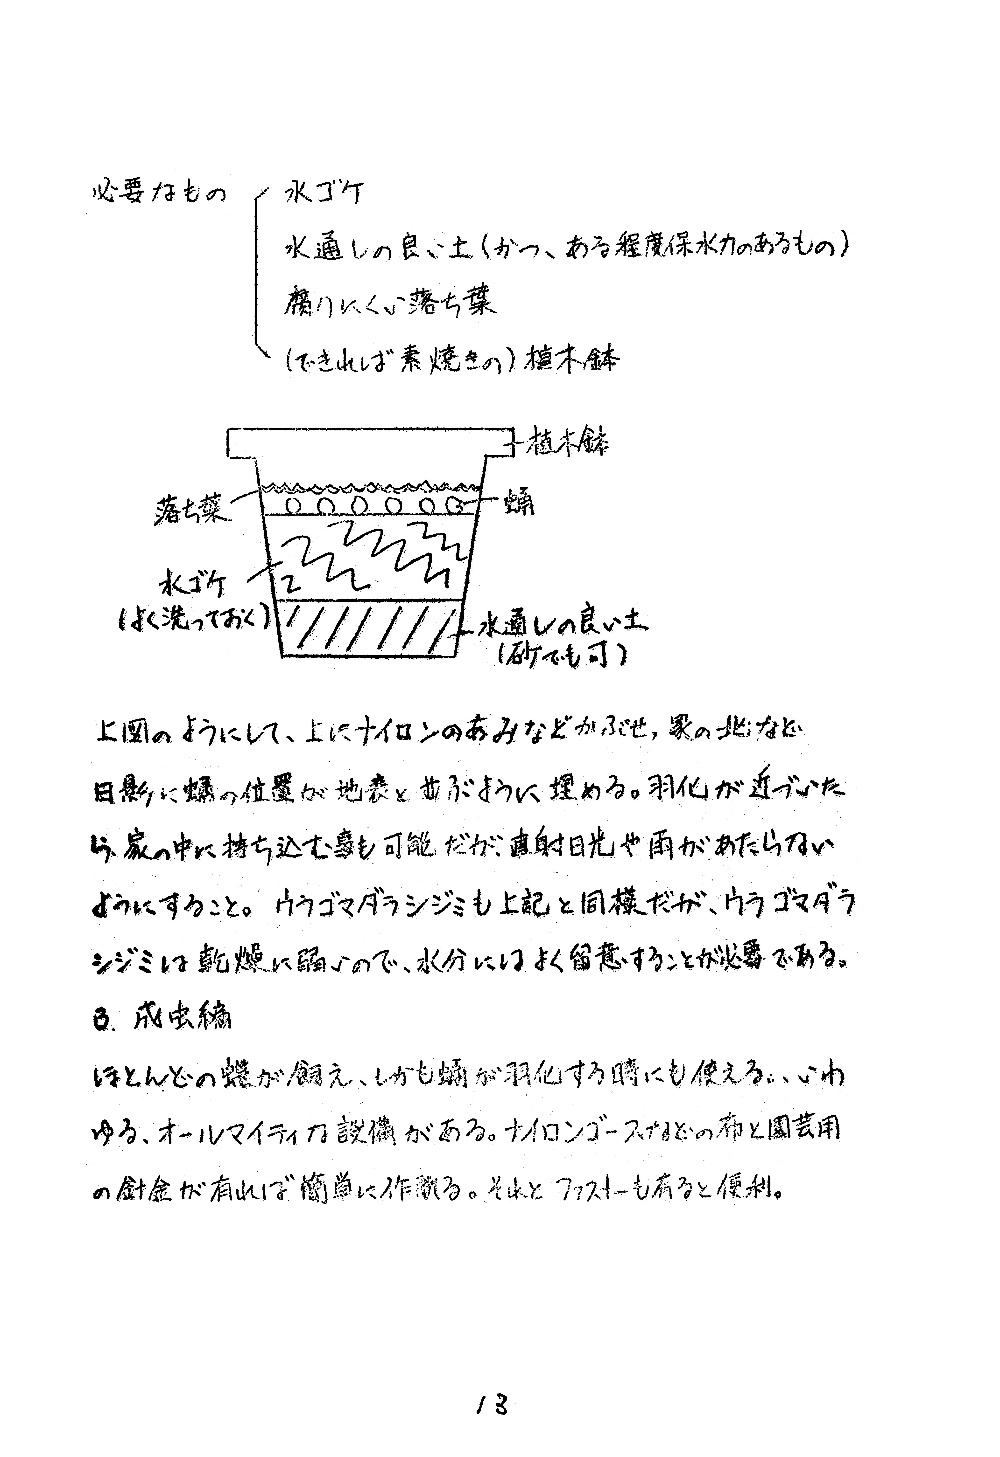 必要なもの 水ゴケ
水通しの良い土(かつ、ある程度保水力のあるもの)
腐りにくい落ち葉
(できれば素焼きの)植木鉢
植木鉢
落ち葉
蛹
水ゴケ
(よく洗っておく)
水通しの良い土
(砂でも可)
上図のようにして、上にナイロンのあみなどかぶせ,家の北など
日影に蛹の位置が地表と並ぶように埋める。羽化が近づいた
ら、家の中に持ち込む事も可能だが、直射日光や雨があたらない
ようにすること。ウラゴマダラシジミも上記と同様だが、ウラゴマダラ
シジミは乾燥に弱いので、水分にはよく留意することが必要である。
3. 成虫編
ほとんどの蝶が飼え、しかも蛹が羽化する時にも使える、いわ
ゆる、オールマイティな設備がある。ナイロンゴースなどの布と園芸用
の針金が有れば簡単に作れる。それとファスナーも有ると便利。
13